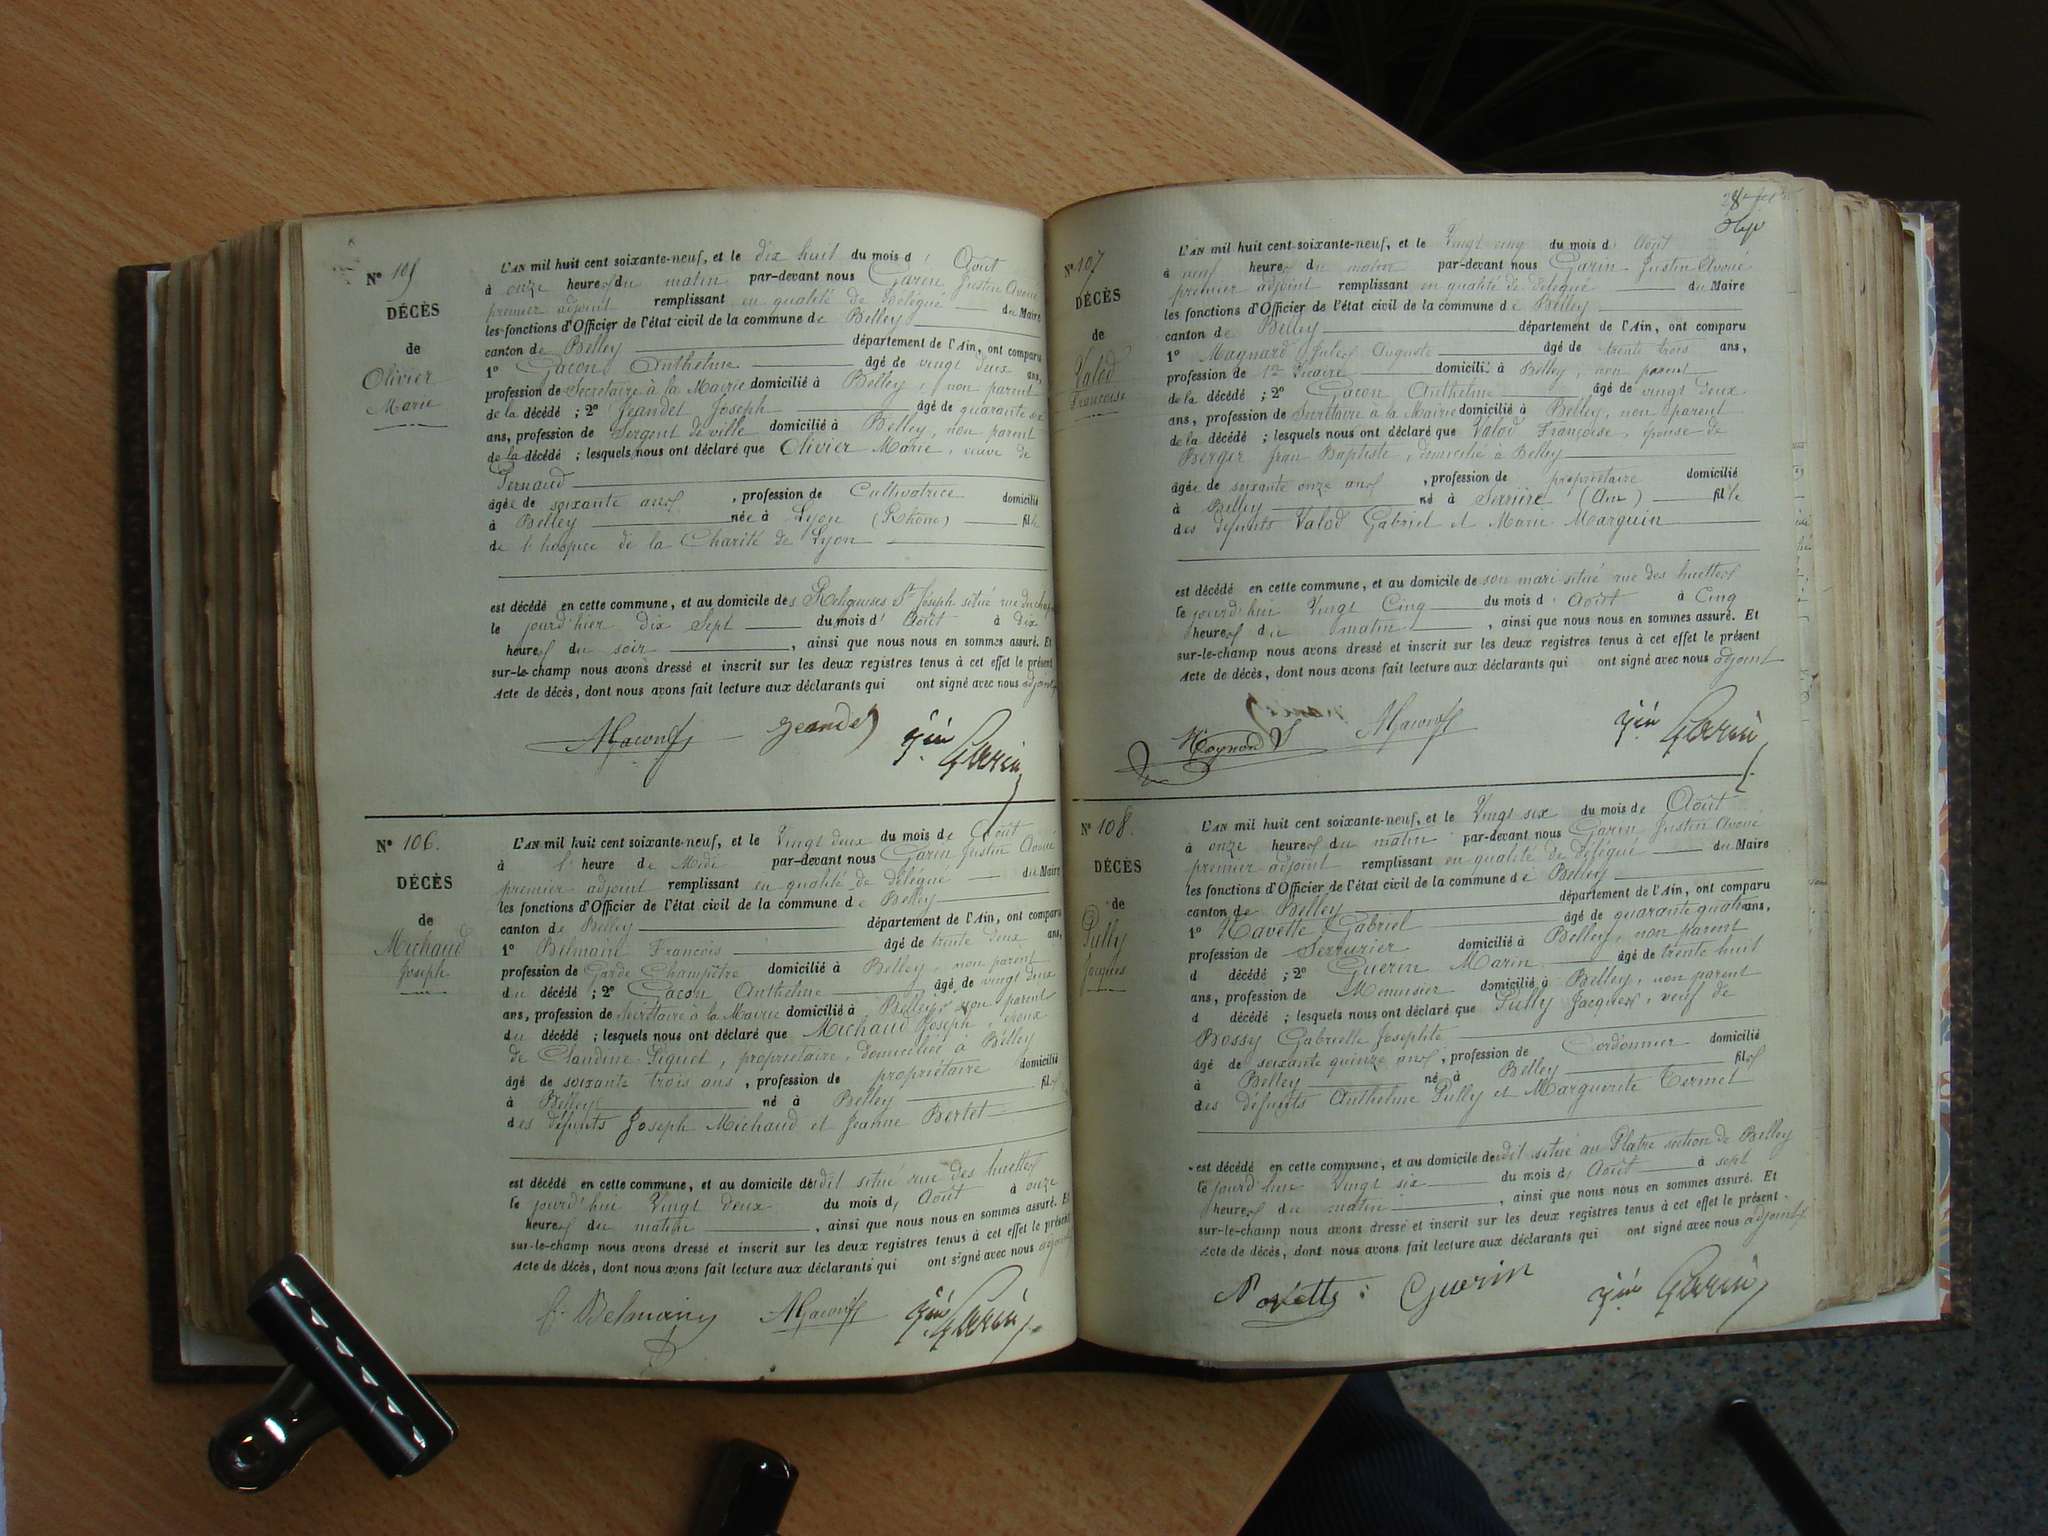 N° 105
DÉCÈS
de
Olivier
Marie
L'AN mil huit cent soixante-neuf, et le dix huit du mois d' Août
à onze heures du matin par-devant nous Garin Justin Avoué
premier adjoint remplissant en qualité de délégué du Maire
les fonctions d'Officier de l'état civil de la commune de Belley
canton de Belley département de l'Ain, ont comparu
1° Gacon Anthelme âgé de vingt deux ans,
profession de Secrétaire à la Mairie domicilié à Belley, non parent
de la décédé ; 2° Jeandet Joseph âgé de quarante six
ans, profession de Sergent de ville domicilié à Belley, non parent
de la décédé ; lesquels nous ont déclaré que Olivier Marie, veuve de
Pernaud
âgée de soixante ans , profession de Cultivatrice domicilié
à Belley née à Lyon (Rhône) fille
de l'hospice de la Charité de Lyon
est décédé en cette commune, et au domicile des Religieuses St Joseph situé rue du
le jourd'hier dix sept du mois d' Août à dix
heures du soir , ainsi que nous nous en sommes assuré. Et
sur-le-champ nous avons dressé et inscrit sur les deux registres tenus à cet effet le présent
Acte de décès, dont nous avons fait lecture aux déclarants qui ont signé avec nous adjoint
AGacon Jeandet Jin Garin
N° 106.
DÉCÈS
de
Michaud
Joseph
L'AN mil huit cent soixante-neuf, et le Vingt deux du mois de Août
à l' heure de Midi par-devant nous Garin Justin Avoué
premier adjoint remplissant en qualité de délégué du Maire
les fonctions d'Officier de l'état civil de la commune de Belley
canton de Belley département de l'Ain, ont comparu
1° Belmain François âgé de trente deux ans,
profession de Garde Champêtre domicilié à Belley, non parent
du décédé ; 2° Gacon Anthelme âgé de vingt deux
ans, profession de Secrétaire à la Mairie domicilié à Belley, non parent
du décédé ; lesquels nous ont déclaré que Michaud Joseph, époux
de Claudine Piquet, propriétaire, domiciliée à Belley
âgé de soixante trois ans , profession de propriétaire domicilié
à Belley né à Belley fils
des défunts Joseph Michaud et Jeanne Bertet
est décédé en cette commune, et au domicile dudit situé rue des huettes
le jourd'hui Vingt deux du mois d' Août à onze
heures du matin , ainsi que nous nous en sommes assuré. Et
sur-le-champ nous avons dressé et inscrit sur les deux registres tenus à cet effet le présent
Acte de décès, dont nous avons fait lecture aux déclarants qui ont signé avec nous adjoint
F. Belmain AGacon Jin Garin
N° 107
DÉCÈS
de
Valod
Françoise
L'AN mil huit cent soixante-neuf, et le Vingt cinq du mois d' Août
à neuf heures du matin par-devant nous Garin Justin Avoué
premier adjoint remplissant en qualité de délégué du Maire
les fonctions d'Officier de l'état civil de la commune de Belley
canton de Belley département de l'Ain, ont comparu
1° Maynard Jules Auguste âgé de trente trois ans,
profession de 1er Vicaire domicilié à Belley, non parent
de la décédé ; 2° Gacon Anthelme âgé de vingt deux
ans, profession de Secrétaire à la Mairie domicilié à Belley, non parent
de la décédé ; lesquels nous ont déclaré que Valod Françoise, épouse de
Berger Jean Baptiste, domicilié à Belley
âgée de soixante onze ans , profession de propriétaire domicilié
à Belley né à Serrière (Ain) fille
des défunts Valod Gabriel et Marie Marguin
est décédé en cette commune, et au domicile de son mari situé rue des huettes
le jourd'hui Vingt Cinq du mois d' Août à Cinq
heures du matin , ainsi que nous nous en sommes assuré. Et
sur-le-champ nous avons dressé et inscrit sur les deux registres tenus à cet effet le présent
Acte de décès, dont nous avons fait lecture aux déclarants qui ont signé avec nous adjoint
Maynard AGacon Jin Garin
N° 108.
DÉCÈS
de
Pully
Jacques
L'AN mil huit cent soixante-neuf, et le Vingt six du mois de Août
à onze heures du matin par-devant nous Garin Justin Avoué
premier adjoint remplissant en qualité de délégué du Maire
les fonctions d'Officier de l'état civil de la commune de Belley
canton de Belley département de l'Ain, ont comparu
1° Navette Gabriel âgé de quarante quatre ans,
profession de Serrurier domicilié à Belley, non parent
d décédé ; 2° Guerin Marin âgé de trente huit
ans, profession de Menuisier domicilié à Belley, non parent
d décédé ; lesquels nous ont déclaré que Pully Jacques, veuf de
Bossy Gabrielle Josephte
âgé de soixante quinze ans , profession de Cordonnier domicilié
à Belley né à Belley fils
des défunts Anthelme Pully et Marguerite Termet
est décédé en cette commune, et au domicile dudit situé au Platre section de Belley
le jourd'hui Vingt six du mois d' Août à sept
heures du matin , ainsi que nous nous en sommes assuré. Et
sur-le-champ nous avons dressé et inscrit sur les deux registres tenus à cet effet le présent
Acte de décès, dont nous avons fait lecture aux déclarants qui ont signé avec nous adjoint
Navette Guerin Jin Garin